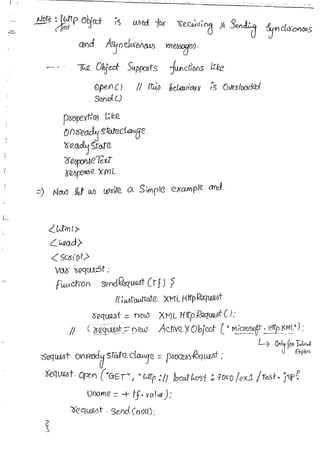 Note: Object is used for receiving & Sending Synchronous
and Asynchronous messages.
---- The Object Supports functions like
open() // this behaviour is Overloaded
Send()
properties like
Onreadystatechange
readyState
responseText
response XML
=) Now let us write a Simple example and.
<html>
<head>
<Script>
Var request;
function sendRequest (tf) {
// instantiate XML HttpRequest
request = new XML HttpRequest ();
// (request = new ActiveXObject ("Microsoft. HttpXML");
↳ Only for
request. Onready state change = processRequest ;
request. open ("GET", "http :// localhost : 7000 /ex1 / Test. jsp?
Uname = + tf. value);
request. Send (null);
}